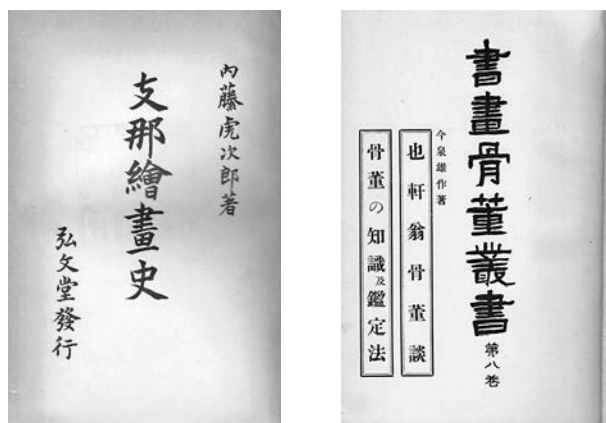 内藤虎次郎著
支那繪畫史
弘文堂發行
書畫骨董叢書
第八卷
今泉雄作著
也軒翁骨董談
骨董の知識及鑑定法